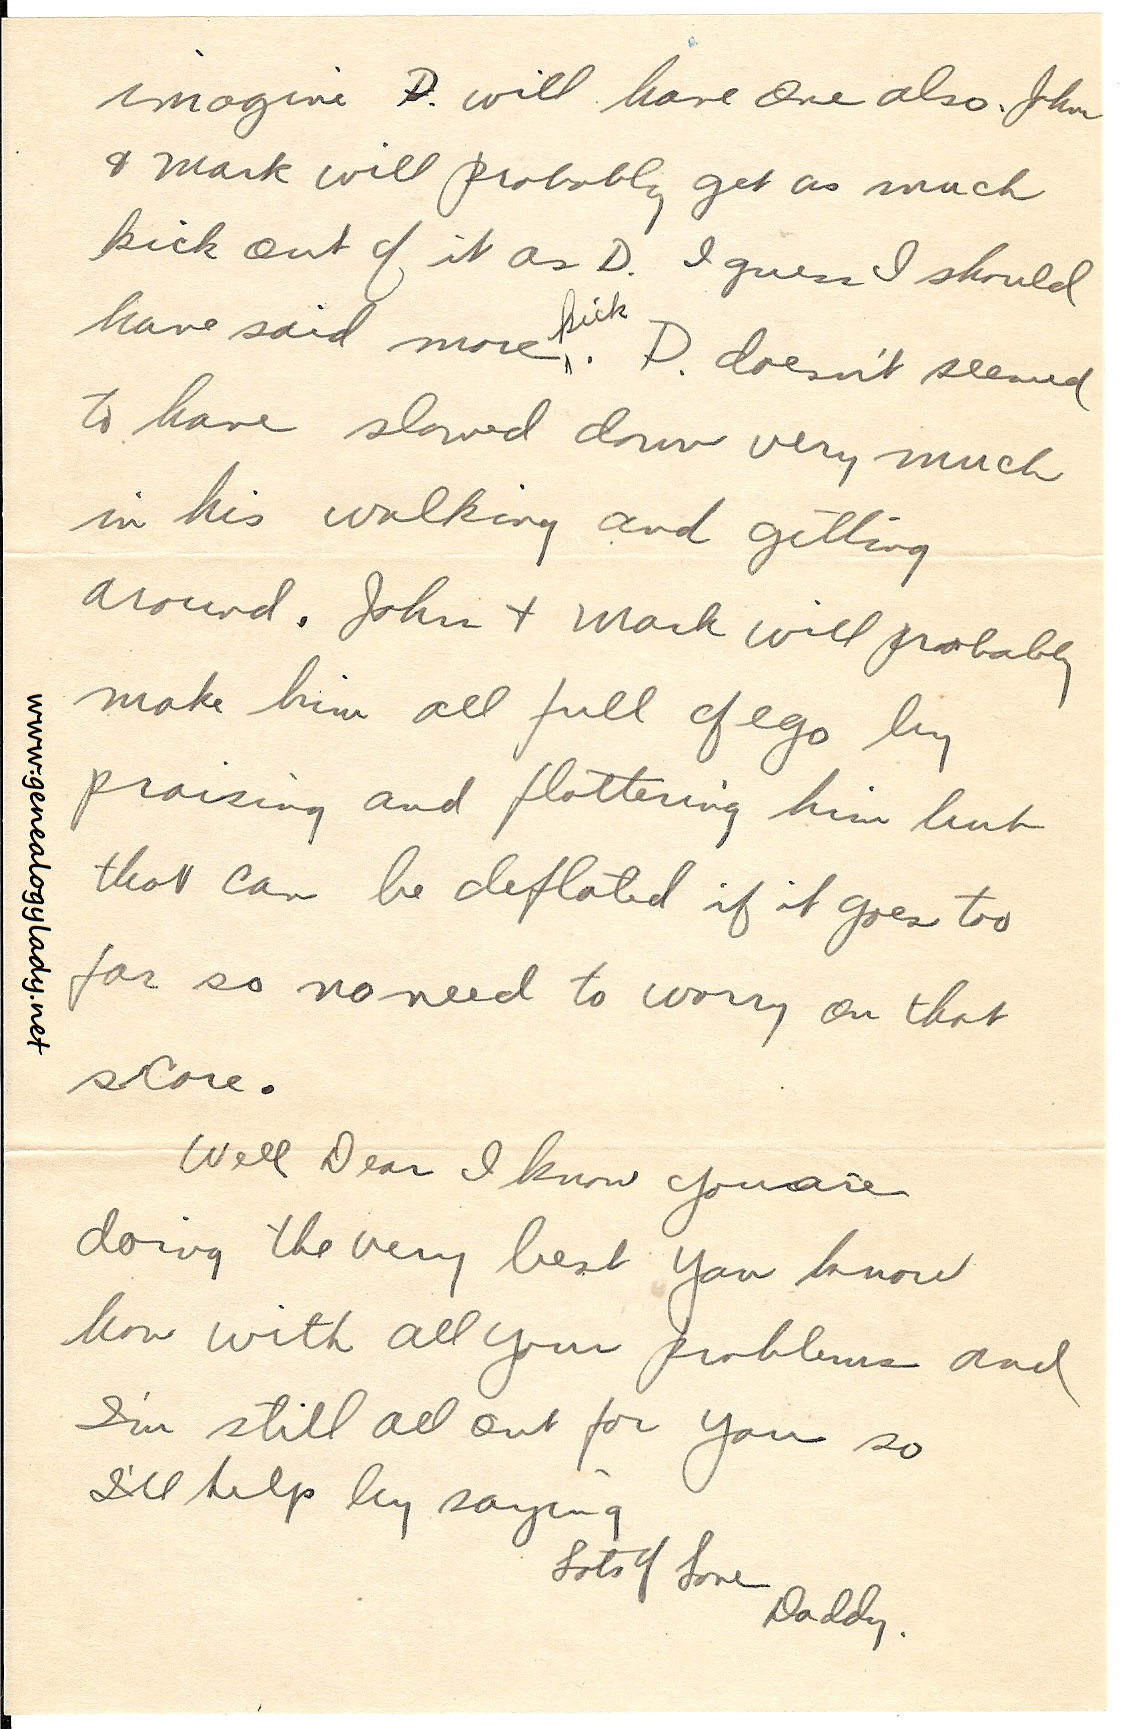 imagine D. will have one also. John
& Mark will probably get as much
kick out of it as D. I guess I should
have said more kick. D. doesn't seemed
to have slowed down very much
in his walking and getting
around. John + Mark will probably
make him all full of ego by
praising and flattering him but
that can be deflated if it goes too
far so no need to worry on that
score.
Well Dear I know you are
doing the very best you know
how with all your problems and
I'm still all out for you so
I'll help by saying
Lots of Love
Daddy.
www.genealogylady.net